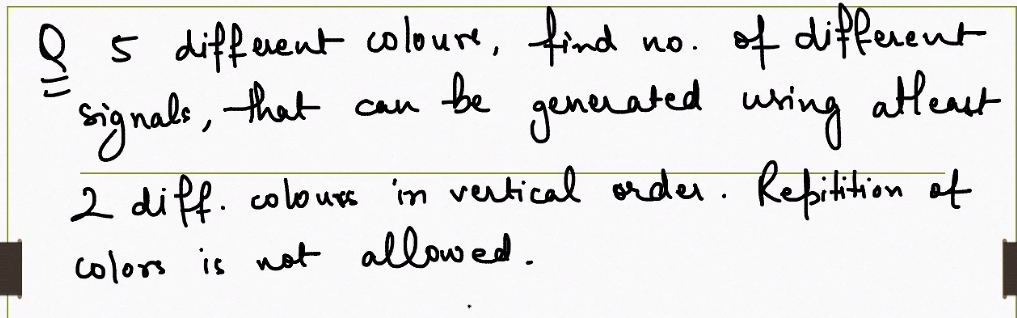 Q 5 different colours, find no. of different
signals, that can be generated using atleast
2 diff. colours in vertical order. Repitition of
colors is not allowed.